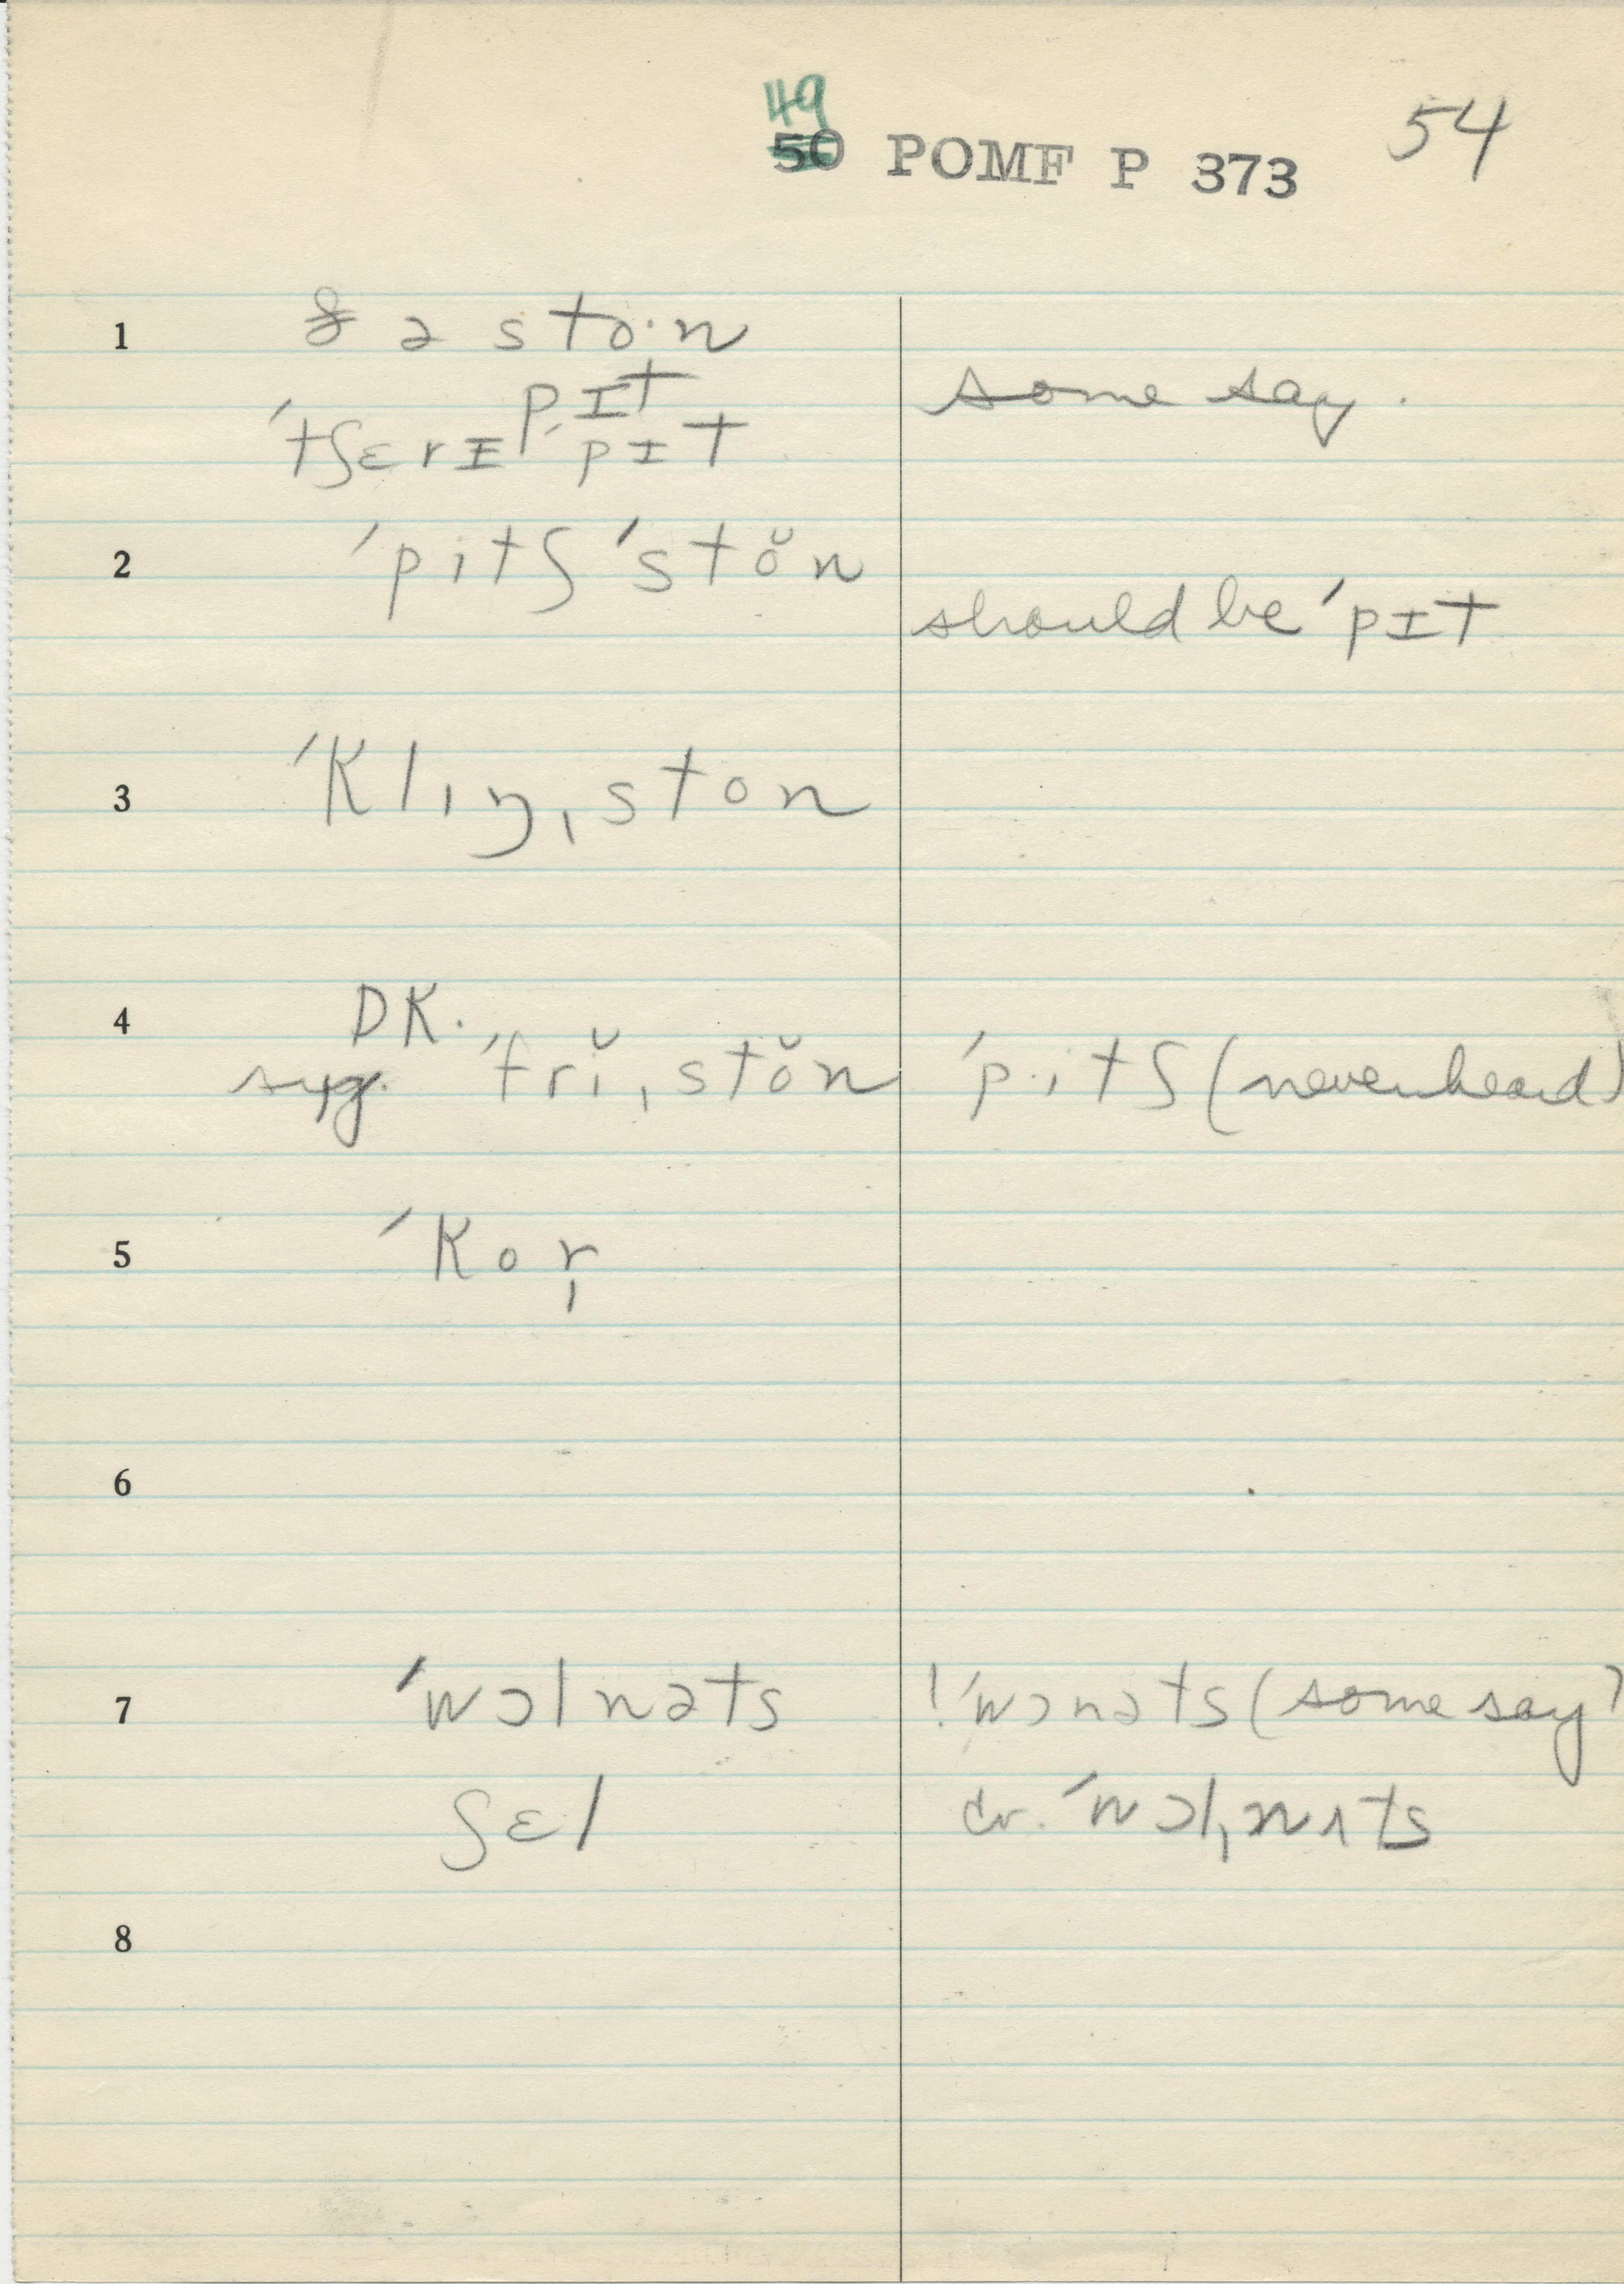 49
50 POMF P 373 54
1 ðə sto·n
pɪt some say.
ˈtʃɛrɪ ˈpɪt
2 ˈpitʃ ˈstŏn
should be ˈpɪt
3 ˈklɪŋˌston
4 DK.
sug. ˈfrĭˌstŏn ˈp·itʃ (never heard)
5 ˈkor̩
6
7 ˈwɔlnəts !ˈwɔnəts (some say)
ʃɛl cr. ˈwɔlˌnʌts
8